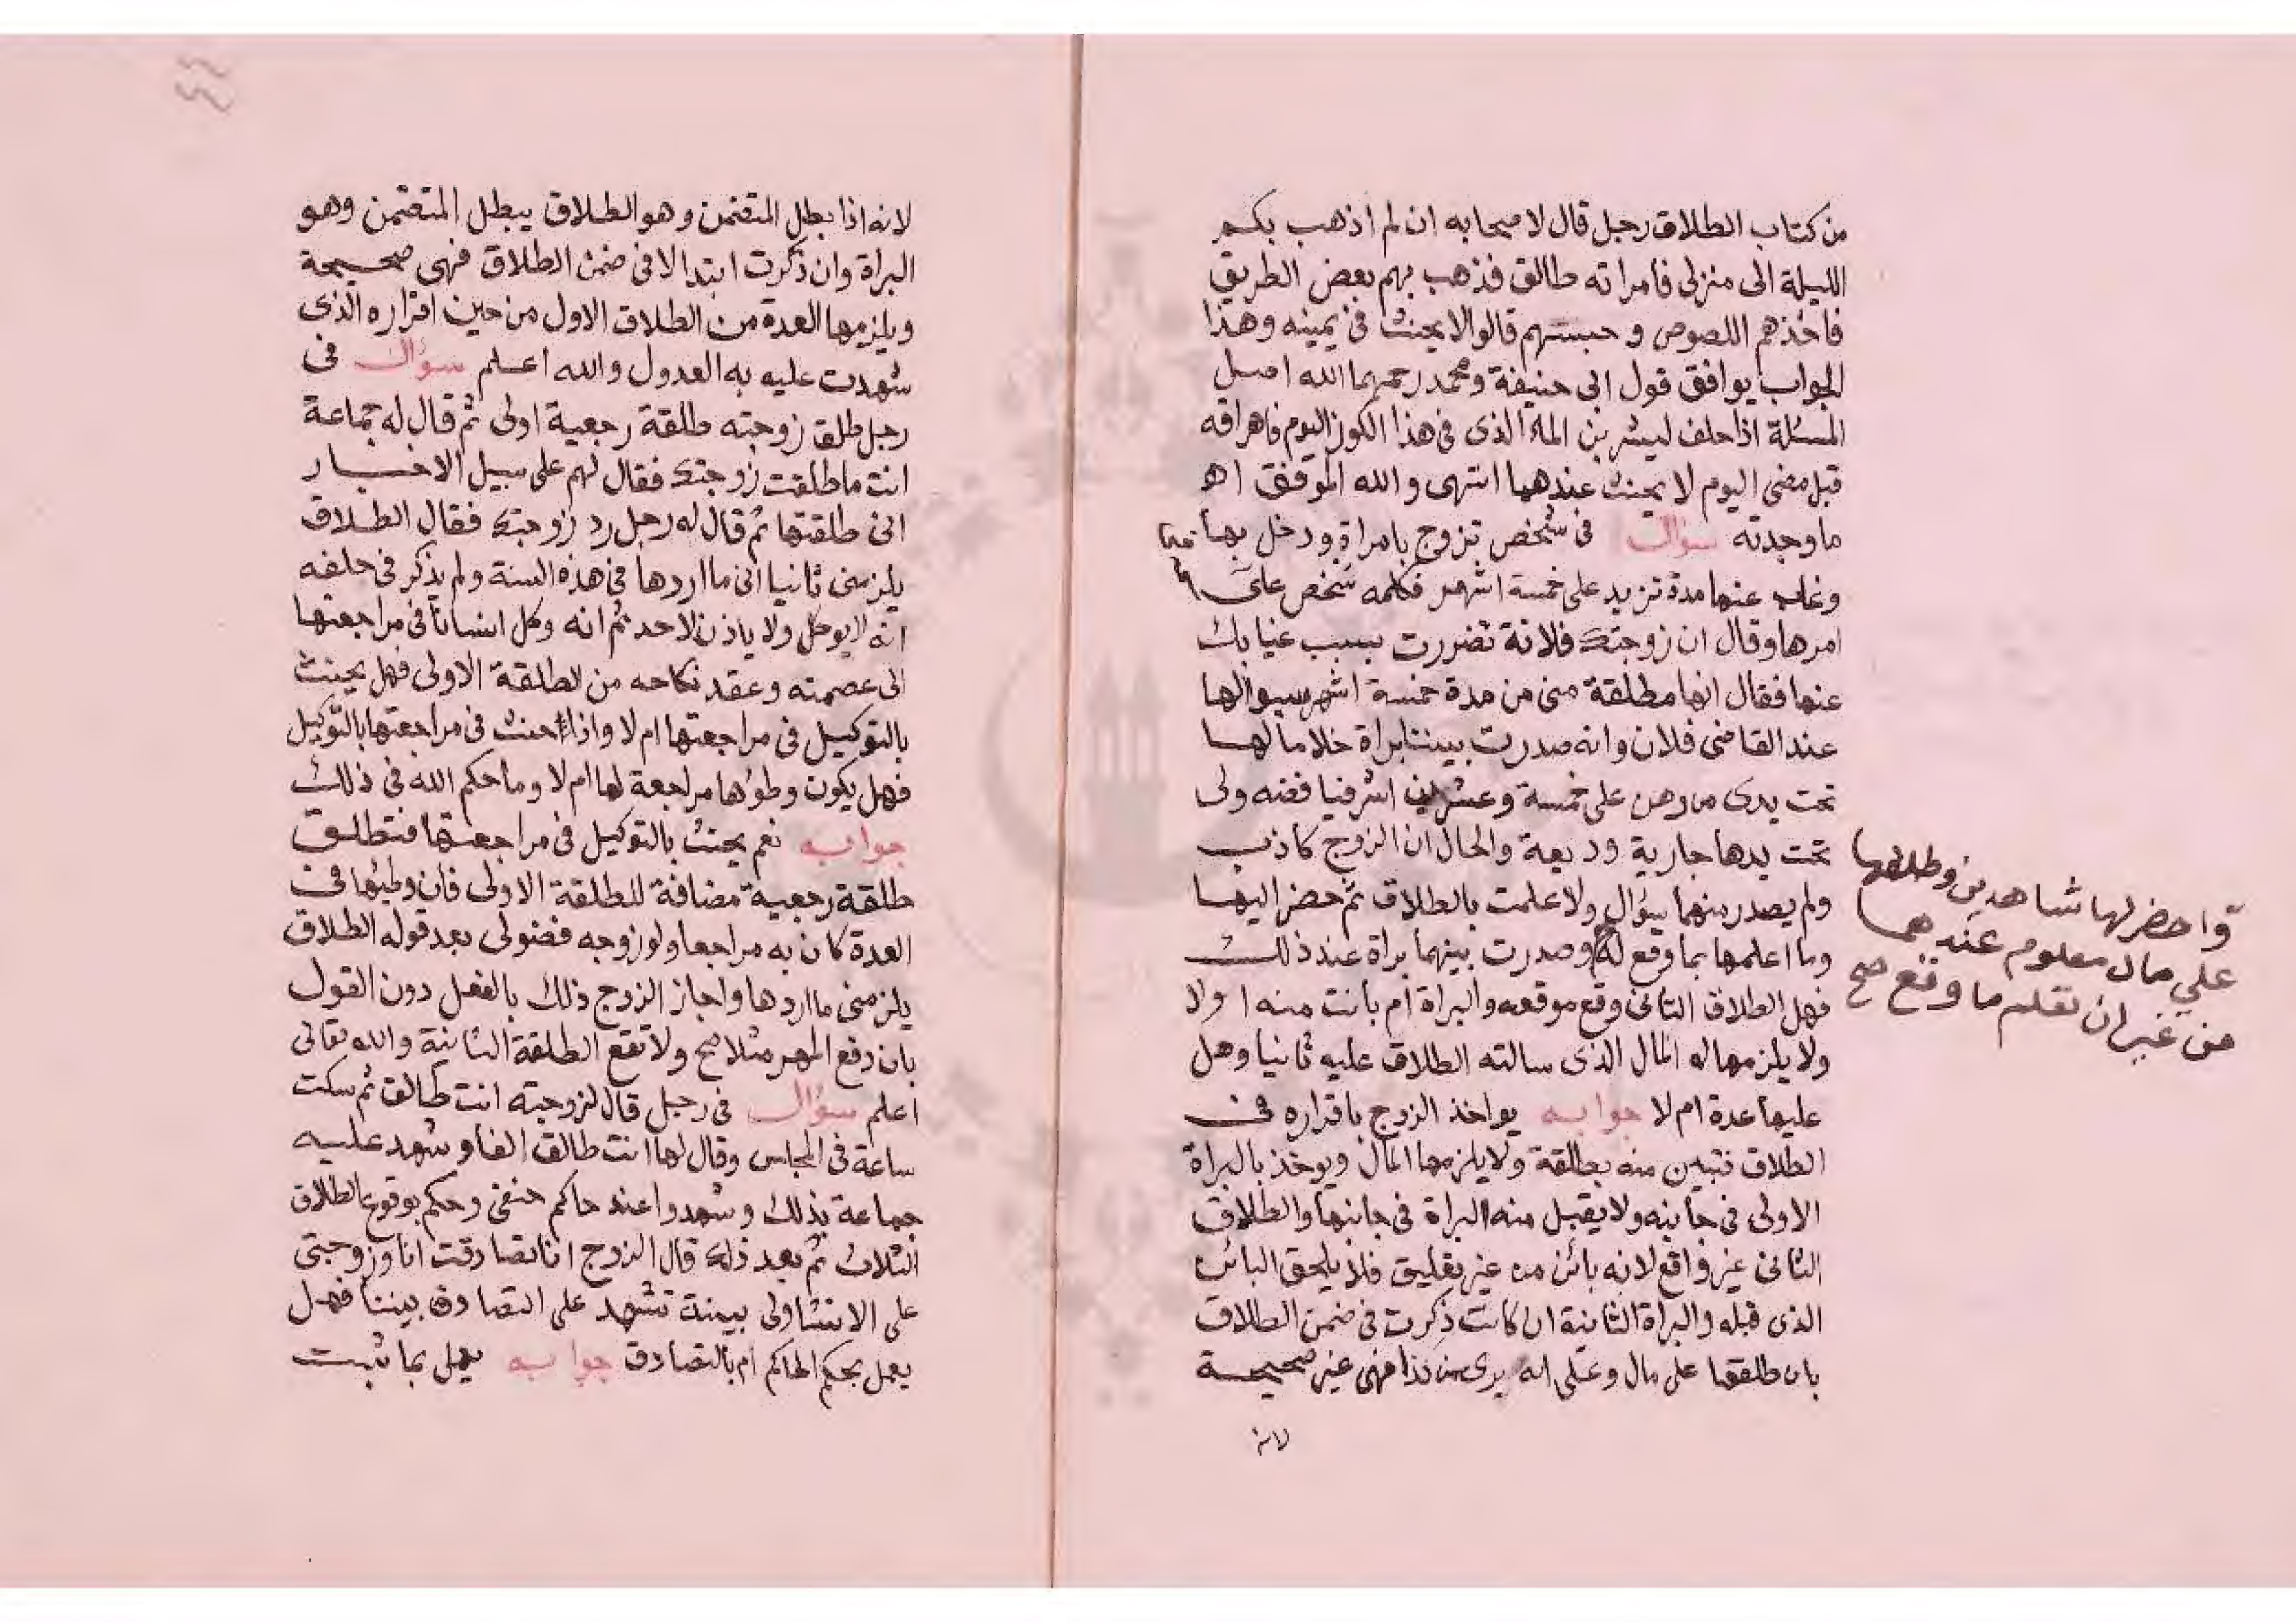 من كتاب الطلاق رجل قال لاصحابه ان لم اذهب بكم
الليلة الى منزلى فامراته طالق فذهب بهم بعض الطريق
فاخذهم اللصوص و حبستهم قالوا لا يحنث فى يمينه وهذا
الجواب يوافق قول ابى حنيفة ومحمد رحمهما الله اصل
المسئلة اذا حلف ليشربن الماء الذى فى هذا الكوز اليوم فاهراقه
قبل مضى اليوم لا يحنث عندهما انتهى والله الموفق اه
ما وجدته سؤال فى شخص تزوج بامراة ودخل بها
وغاب عنها مدة تزيد على خمسة اشهر فكلمه شخص على
امرها وقال ان زوجتك فلانة تضررت بسبب غيابك
عنها فقال انها مطلقة منى من مدة خمسة اشهر بسوالها
عند القاضى فلان وانه صدرت بيننا براة خلا ما لها
تحت يدى من رهن على خمسة وعشرين اشرفيا فضه ولى
تحت يدها جارية وديعة والحال ان الزوج كاذب
ولم يصدر منهما سؤال ولا علمت بالطلاق ثم حضر اليها
وما اعلمها بما وقع له وصدرت بينهما براة عند ذلك
واحضر لها شاهدين وطلقها
على مال معلوم عندهما
من غير ان تعلم ما وقع صح
فهل الطلاق الثانى وقع موقعه والبراة ام بانت منه اولا
ولا يلزمها له المال الذى سالته الطلاق عليه ثانيا وهل
عليها عدة ام لا جوابه يواخذ الزوج باقراره فى
الطلاق فتبين منه بطلقة ولا يلزمها المال ويوخذ بالبراة
الاولى فى جانبه ولا يقبل منه البراة فى جانبها والطلاق
الثانى غير واقع لانه بائن من غير تعليق فلا يلحق البائن
الذى قبله والبراة الثانية ان كانت ذكرت فى ضمن الطلاق
بان طلقها على مال وعلى انه برى من كذا فهى غير صحيحة
لانه
لانه اذا بطل المتضمن وهو الطلاق يبطل المتضمن وهو
البراة وان ذكرت ابتدا لا فى ضمن الطلاق فهى صحيحة
ويلزمها العدة من الطلاق الاول من حين اقراره الذى
شهدت عليه به العدول والله اعلم سؤال فى
رجل طلق زوجته طلقة رجعية اولى ثم قال له جماعة
انت ما طلقت زوجتك فقال لهم على سبيل الاخبار
انى طلقتها ثم قال له رجل رد زوجتك فقال الطلاق
يلزمنى ثانيا انى ما اردها فى هذه السنة ولم يذكر فى حلفه
انه لا يوكل ولا ياذن لاحد ثم انه وكل انسانا فى مراجعتها
الى عصمته وعقد نكاحه من الطلقة الاولى فهل يحنث
بالتوكيل فى مراجعتها ام لا واذا حنث فى مراجعتها بالتوكيل
فهل يكون وطؤها مراجعة لها ام لا وما حكم الله فى ذلك
جوابه نعم يحنث بالتوكيل فى مراجعتها فتطلق
طلقة رجعية مضافة للطلقة الاولى فان وطئها فى
العدة كان به مراجعا ولو زوجه فضولى بعد قوله الطلاق
يلزمنى ما اردها واجاز الزوج ذلك بالفعل دون القول
بان دفع المهر مثلا صح ولا تقع الطلقة الثانية والله تعالى
اعلم سؤال فى رجل قال لزوجته انت طالق ثم سكت
ساعة فى المجلس وقال لها انت طالق الفا وشهد عليه
جماعة بذلك وشهدوا عند حاكم حنفى وحكم بوقوع الطلاق
الثلاث ثم بعد ذلك قال الزوج انا تصادقت انا وزوجتى
على الانشا ولى بينة تشهد على التصادق بيننا فهل
يعمل بحكم الحاكم ام بالتصادق جوابه يعمل بما ثبت